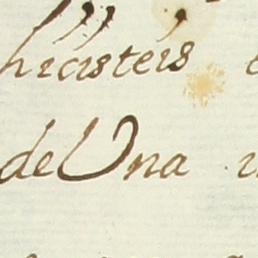 hicisteis
de Una